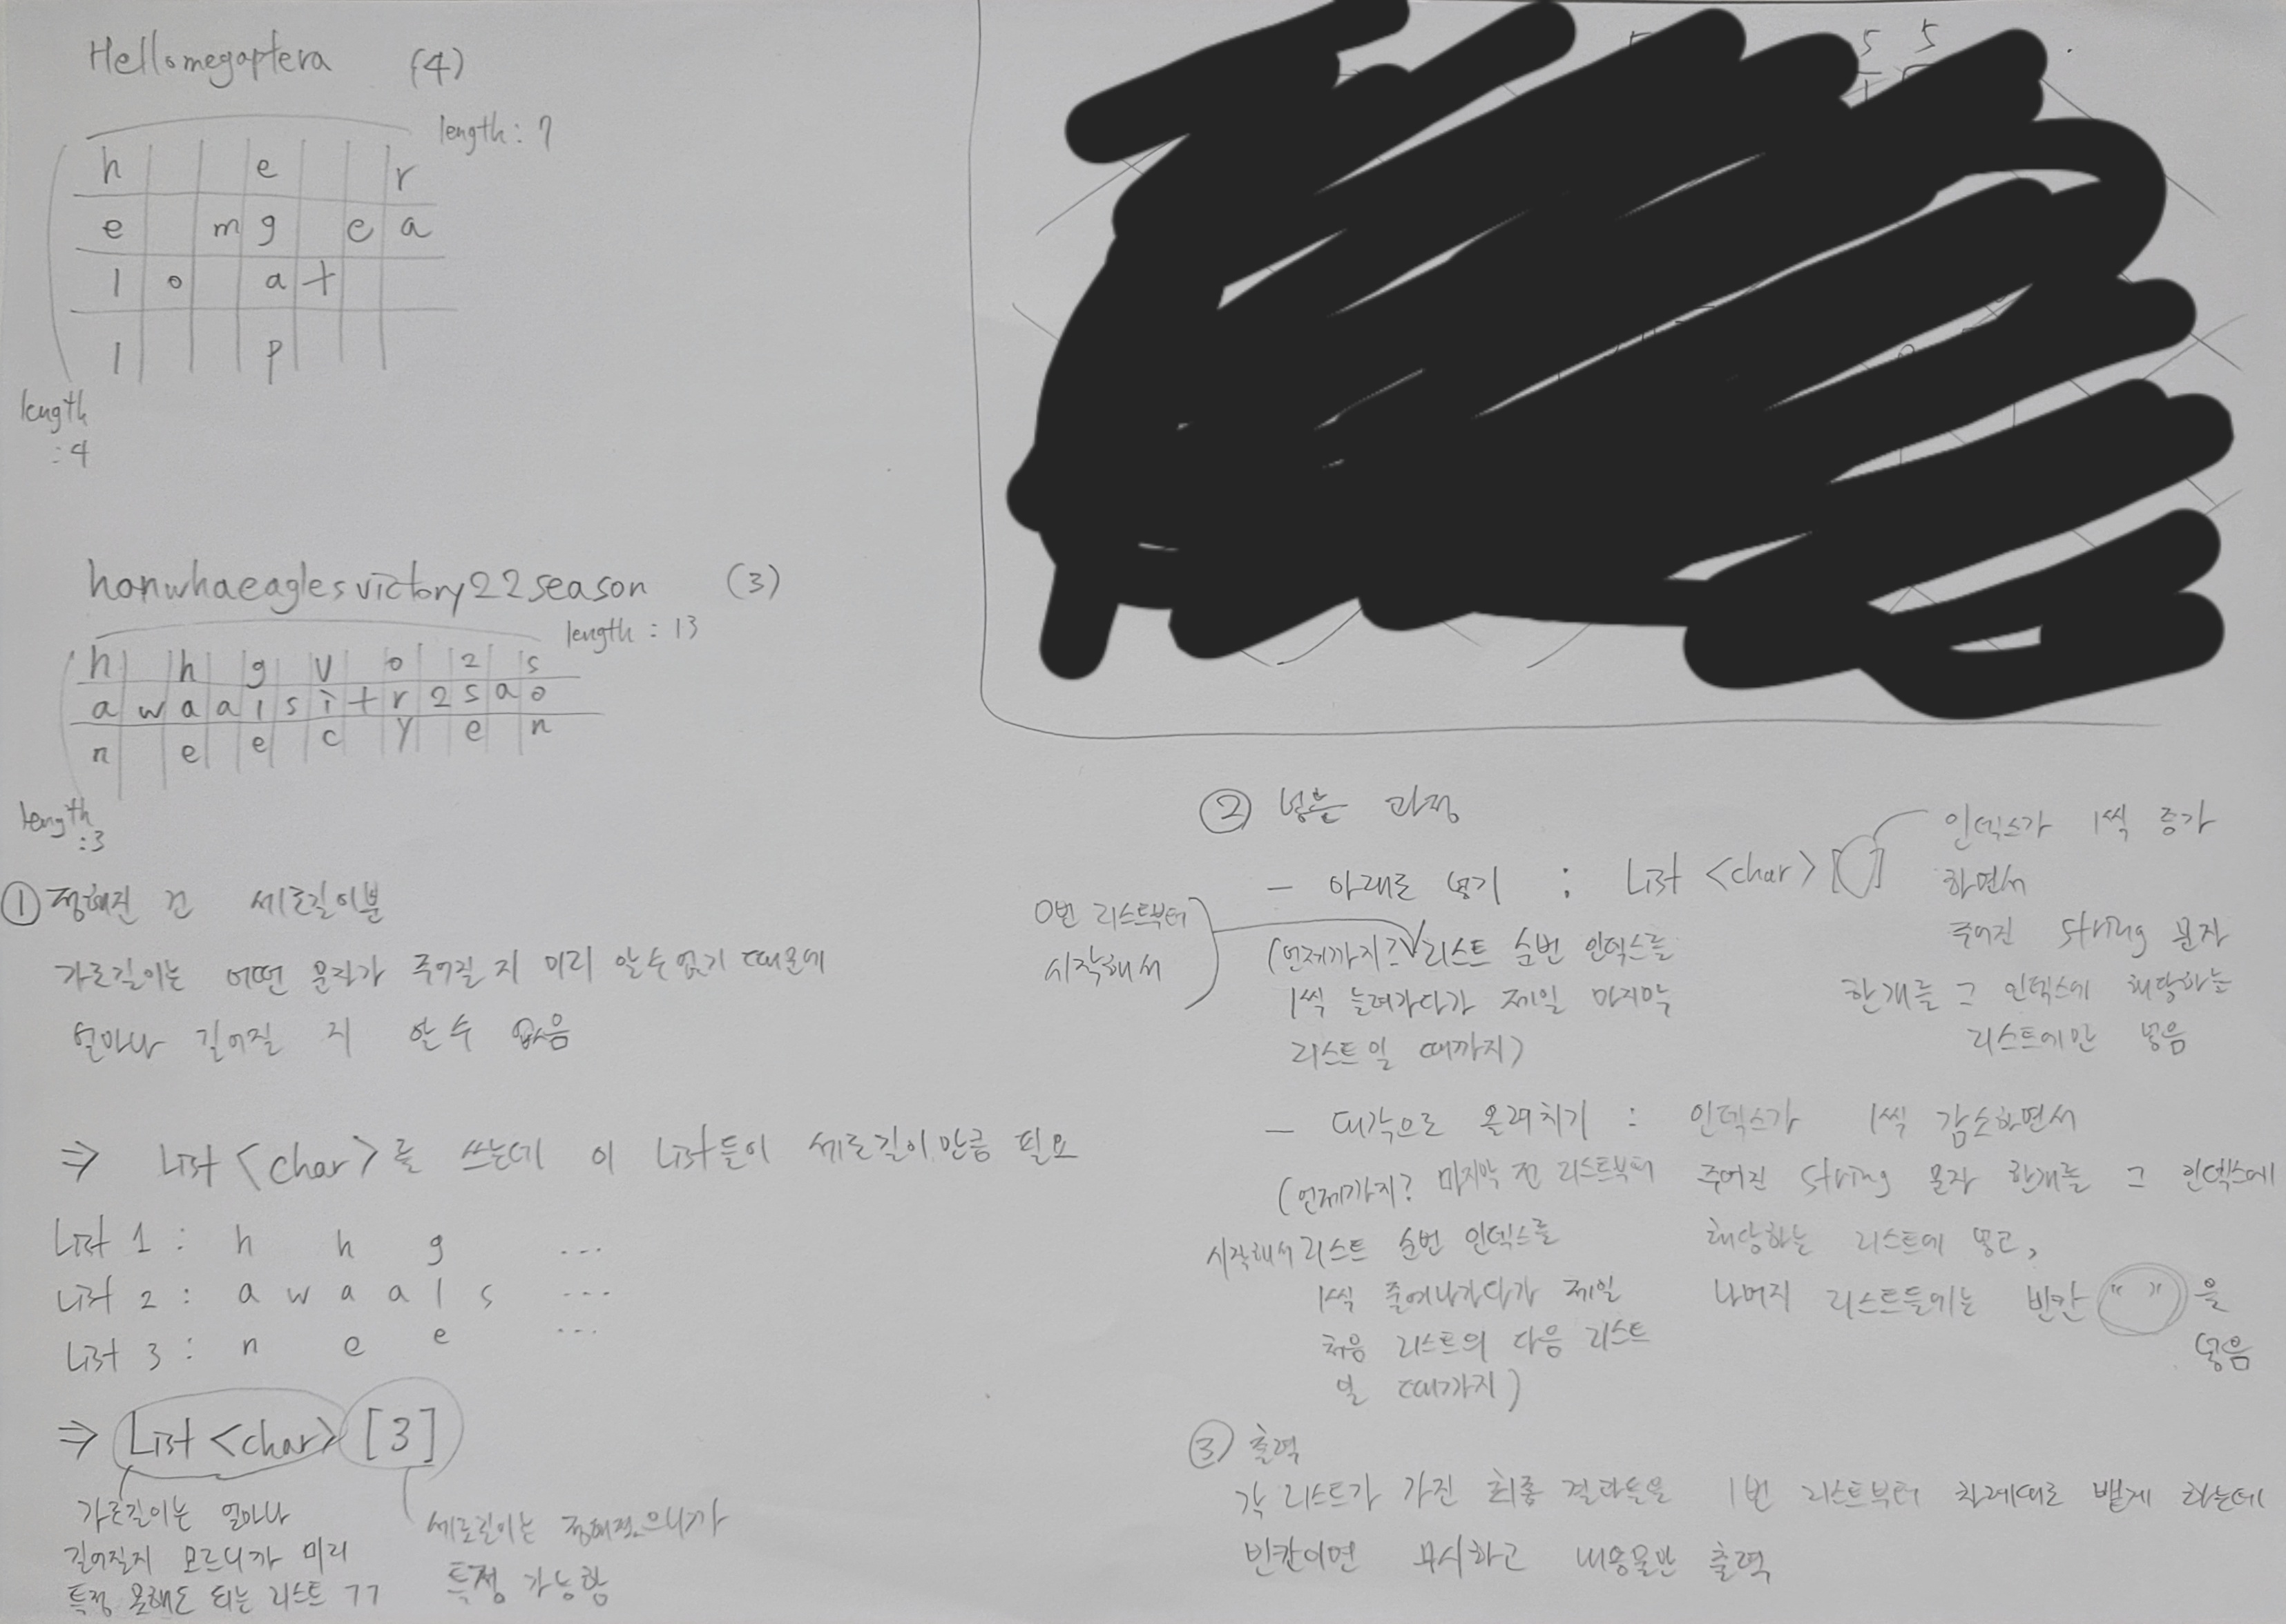 Hellomegaptera (4)
length : 7
h e r
e m g e a
l o a t
l p
length
: 4
hanwhaeaglesvictory22season (3)
length : 13
h h g v o 2 s
a w a a l s i t r 2 s a o
n e e c y e n
length
: 3
① 정해진 건 세로길이뿐
가로길이는 어떤 문자가 주어질 지 미리 알 수 없기 때문에
얼마나 길어질 지 알 수 없음
⇒ List <char>를 쓰는데 이 List들이 세로길이만큼 필요
List 1 : h h g ...
List 2 : a w a a l s ...
List 3 : n e e ...
⇒ List <char> [3]
가로길이는 얼마나
길어질지 모르니까 미리
특정 못해도 되는 리스트 ㄱㄱ
세로길이는 정해졌으니까
특정 가능함
5 5
② 넣는 과정
— 아래로 넣기 : List <char> [ ]
인덱스가 1씩 증가
하면서
주어진 string 문자
한개를 그 인덱스에 해당하는
리스트에만 넣음
0번 리스트부터
시작해서
(언제까지? 리스트 순번 인덱스를
1씩 늘려가다가 제일 마지막
리스트일 때까지)
— 대각으로 올려치기 : 인덱스가 1씩 감소하면서
주어진 string 문자 한개를 그 인덱스에
해당하는 리스트에 넣고,
나머지 리스트들에는 빈칸 " " 을
넣음
(언제까지? 마지막 전 리스트부터
시작해서 리스트 순번 인덱스를
1씩 줄여나가다가 제일
처음 리스트의 다음 리스트
일 때까지)
③ 출력
각 리스트가 가진 최종 결과들을 1번 리스트부터 차례대로 뱉게 하는데
빈칸이면 무시하고 내용물만 출력